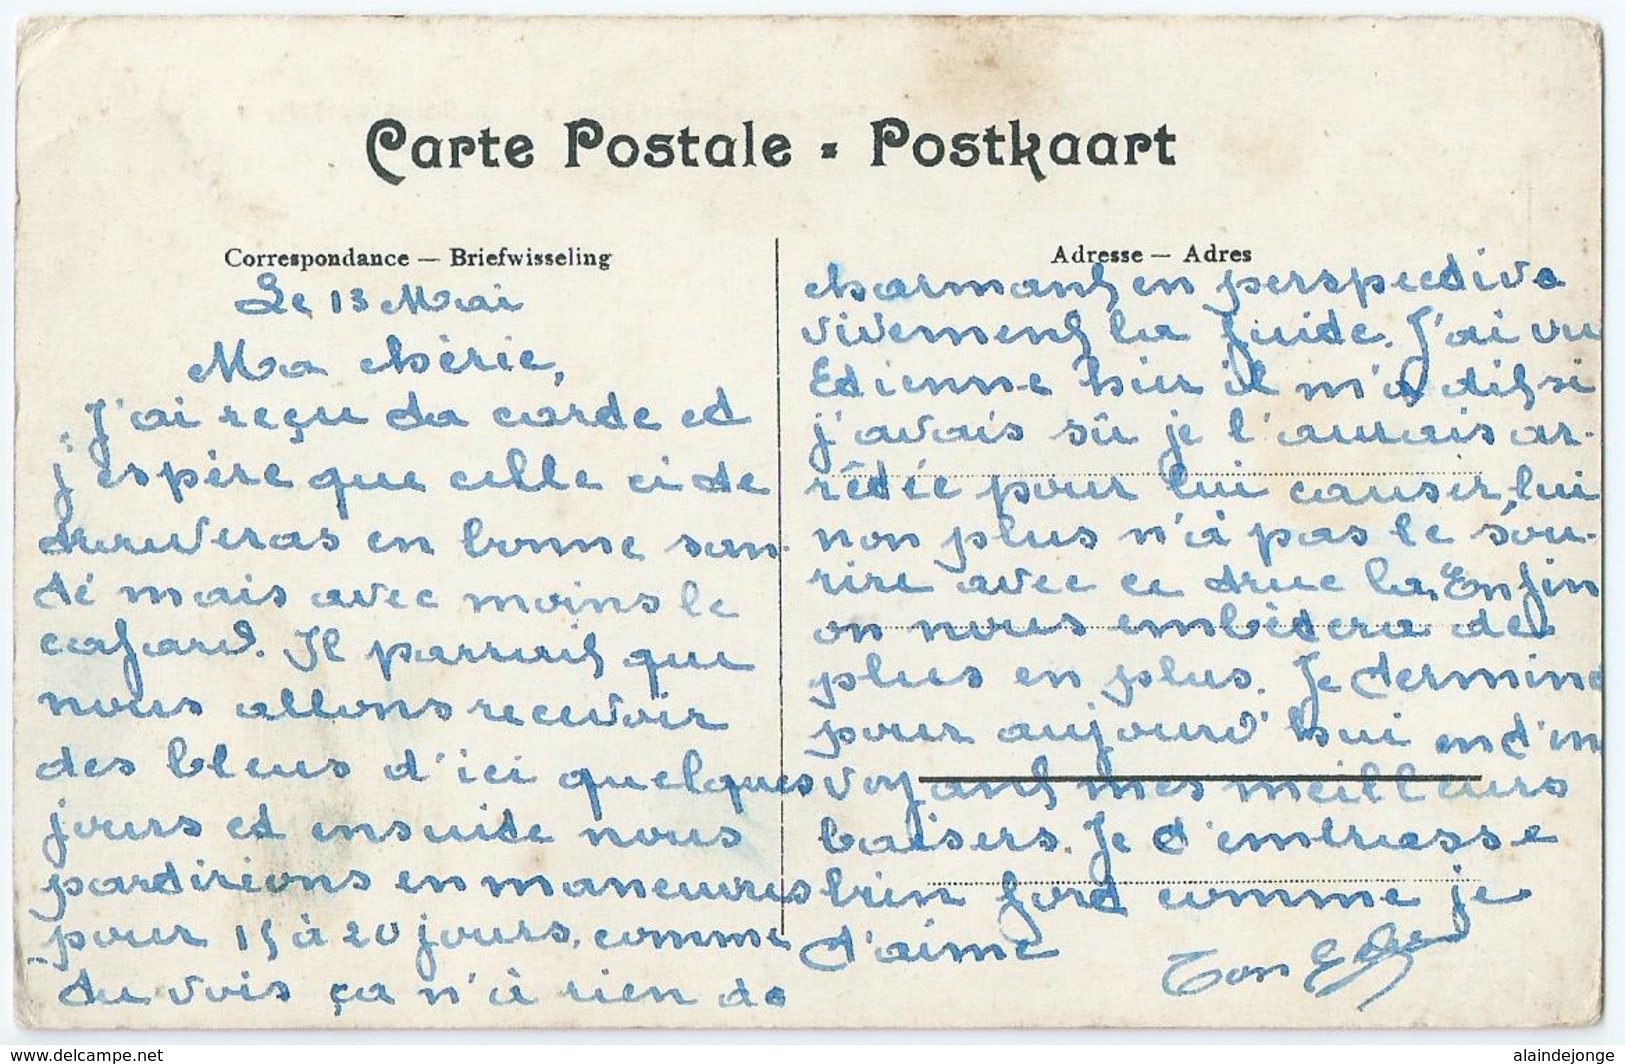 Carte Postale - Postkaart
Correspondance — Briefwisseling
Le 13 Mai
Ma chérie,
J'ai reçu ta carte et
j'espère que celle ci te
trouveras en bonne san-
té mais avec moins le
cafard. Il parrait que
nous allons recevoir
des bleus d'ici quelques
jours et ensuite nous
partirions en maneuvres
pour 15 à 20 jours, comme
tu vois ça n'à rien de
Adresse — Adres
charmant en perspective
vivement la fuite. J'ai vu
Etienne hier il m'a dit si
j'avais sû je l'aurais ar-
rêtée pour lui causer, lui
non plus n'à pas le sou-
rire avec ce truc la. Enfin
on nous embètera de
plus en plus. Je termine
pour aujourd'hui en t'en
voyant mes meilleurs
baisers. Je t'embrasse
bien fort comme je
t'aime
Ton
delcampe.net
alaindejonge